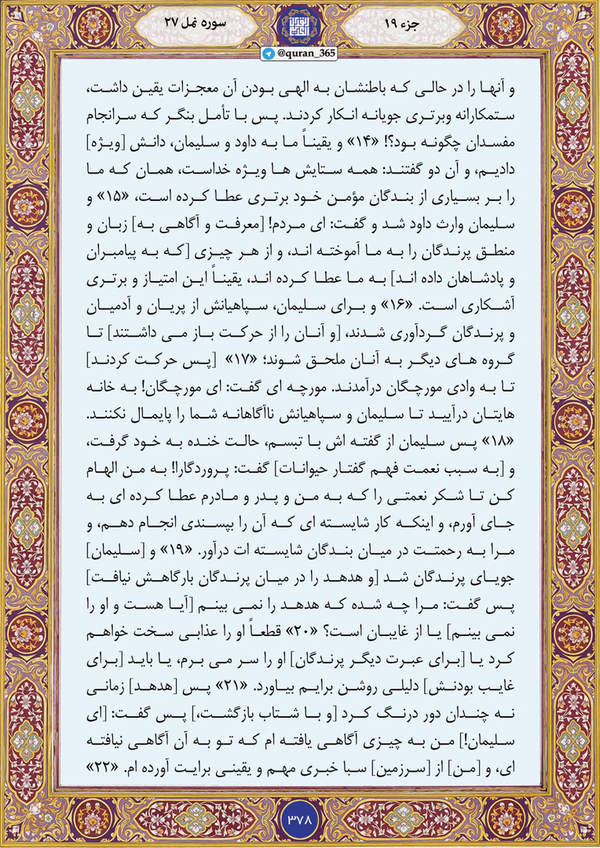 جزء ۱۹
سوره نمل ۲۷
@quran_365
و آنها را در حالی که باطنشان به الهی بودن آن معجزات یقین داشت،
ستمکارانه وبرتری جویانه انکار کردند. پس با تأمل بنگر که سرانجام
مفسدان چگونه بود؟! «۱۴» و یقیناً ما به داود و سلیمان، دانش [ویژه]
دادیم، و آن دو گفتند: همه ستایش ها ویژه خداست، همان که ما
را بر بسیاری از بندگان مؤمن خود برتری عطا کرده است، «۱۵» و
سلیمان وارث داود شد و گفت: ای مردم! [معرفت و آگاهی به] زبان و
منطق پرندگان را به ما آموخته اند، و از هر چیزی [که به پیامبران
و پادشاهان داده اند] به ما عطا کرده اند، یقیناً این امتیاز و برتری
آشکاری است. «۱۶» و برای سلیمان، سپاهیانش از پریان و آدمیان
و پرندگان گردآوری شدند، [و آنان را از حرکت باز می داشتند] تا
گروه های دیگر به آنان ملحق شوند؛ «۱۷» [پس حرکت کردند]
تا به وادی مورچگان درآمدند. مورچه ای گفت: ای مورچگان! به خانه
هایتان درآیید تا سلیمان و سپاهیانش ناآگاهانه شما را پایمال نکنند.
«۱۸» پس سلیمان از گفته اش با تبسم، حالت خنده به خود گرفت،
و [به سبب نعمت فهم گفتار حیوانات] گفت: پروردگارا! به من الهام
کن تا شکر نعمتی را که به من و پدر و مادرم عطا کرده ای به
جای آورم، و اینکه کار شایسته ای که آن را بپسندی انجام دهم، و
مرا به رحمتت در میان بندگان شایسته ات درآور. «۱۹» و [سلیمان]
جویای پرندگان شد [و هدهد را در میان پرندگان بارگاهش نیافت]
پس گفت: مرا چه شده که هدهد را نمی بینم [آیا هست و او را
نمی بینم] یا از غایبان است؟ «۲۰» قطعاً او را عذابی سخت خواهم
کرد یا [برای عبرت دیگر پرندگان] او را سر می برم، یا باید [برای
غایب بودنش] دلیلی روشن برایم بیاورد. «۲۱» پس [هدهد] زمانی
نه چندان دور درنگ کرد [و با شتاب بازگشت،] پس گفت: [ای
سلیمان!] من به چیزی آگاهی یافته ام که تو به آن آگاهی نیافته
ای، و [من] از [سرزمین] سبا خبری مهم و یقینی برایت آورده ام. «۲۲»
۳۷۸